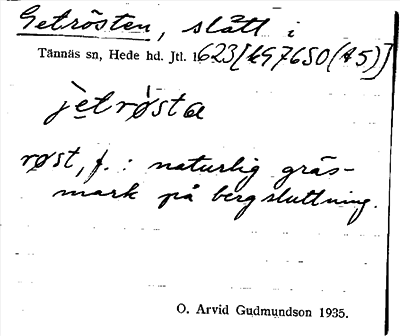 Getrösten, slått i
Tännäs sn, Hede hd. Jtl. 1623[kG7650(A5)]
jetrøsta
røst, f. : naturlig gräs-
mark på bergsluttning.
O. Arvid Gudmundson 1935.